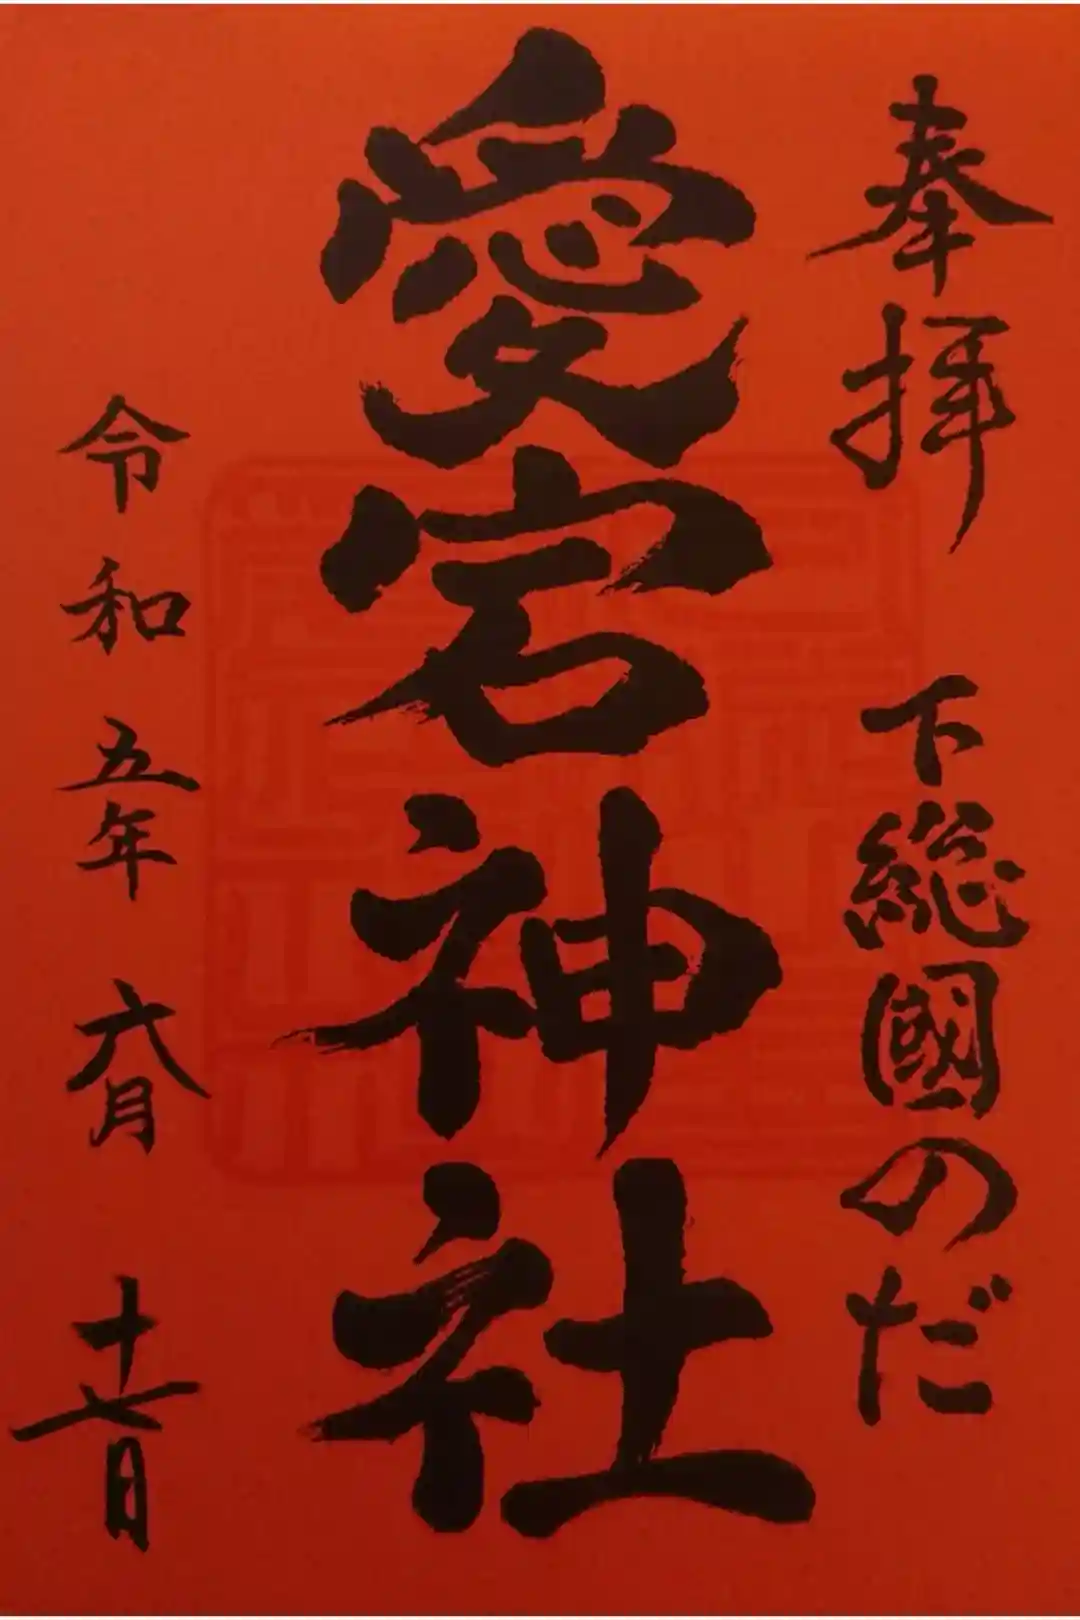 奉拝 下総國のだ
愛宕神社
令和五年六月十七日